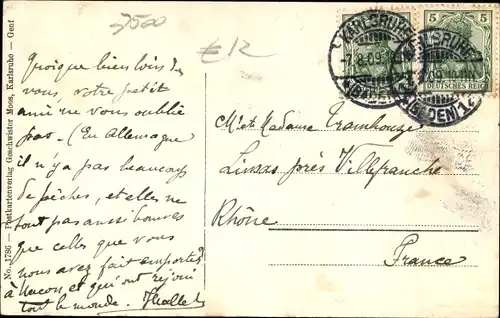 7500
€ 12
KARLSRUHE
-7.8.09.
(BADEN)
5 5
DEUTSCHES REICH
KARLSRUHE
.09.10-11N
(BADEN) 1
No. 1786 – Postkartenverlag Geschwister Moos, Karlsruhe – Genf
Quoique bien loin de
vous, votre petit
ami ne vous oublie
pas. (En Allemagne
il n'y a pas beaucoup
de pêches, et elles ne
sont pas aussi bonnes
que celles que vous
nous avez fait emporter
à Macon et qui ont réjoui
tout le monde.
M et Madame Tramhouze
Limas près Villefranche
Rhône
France